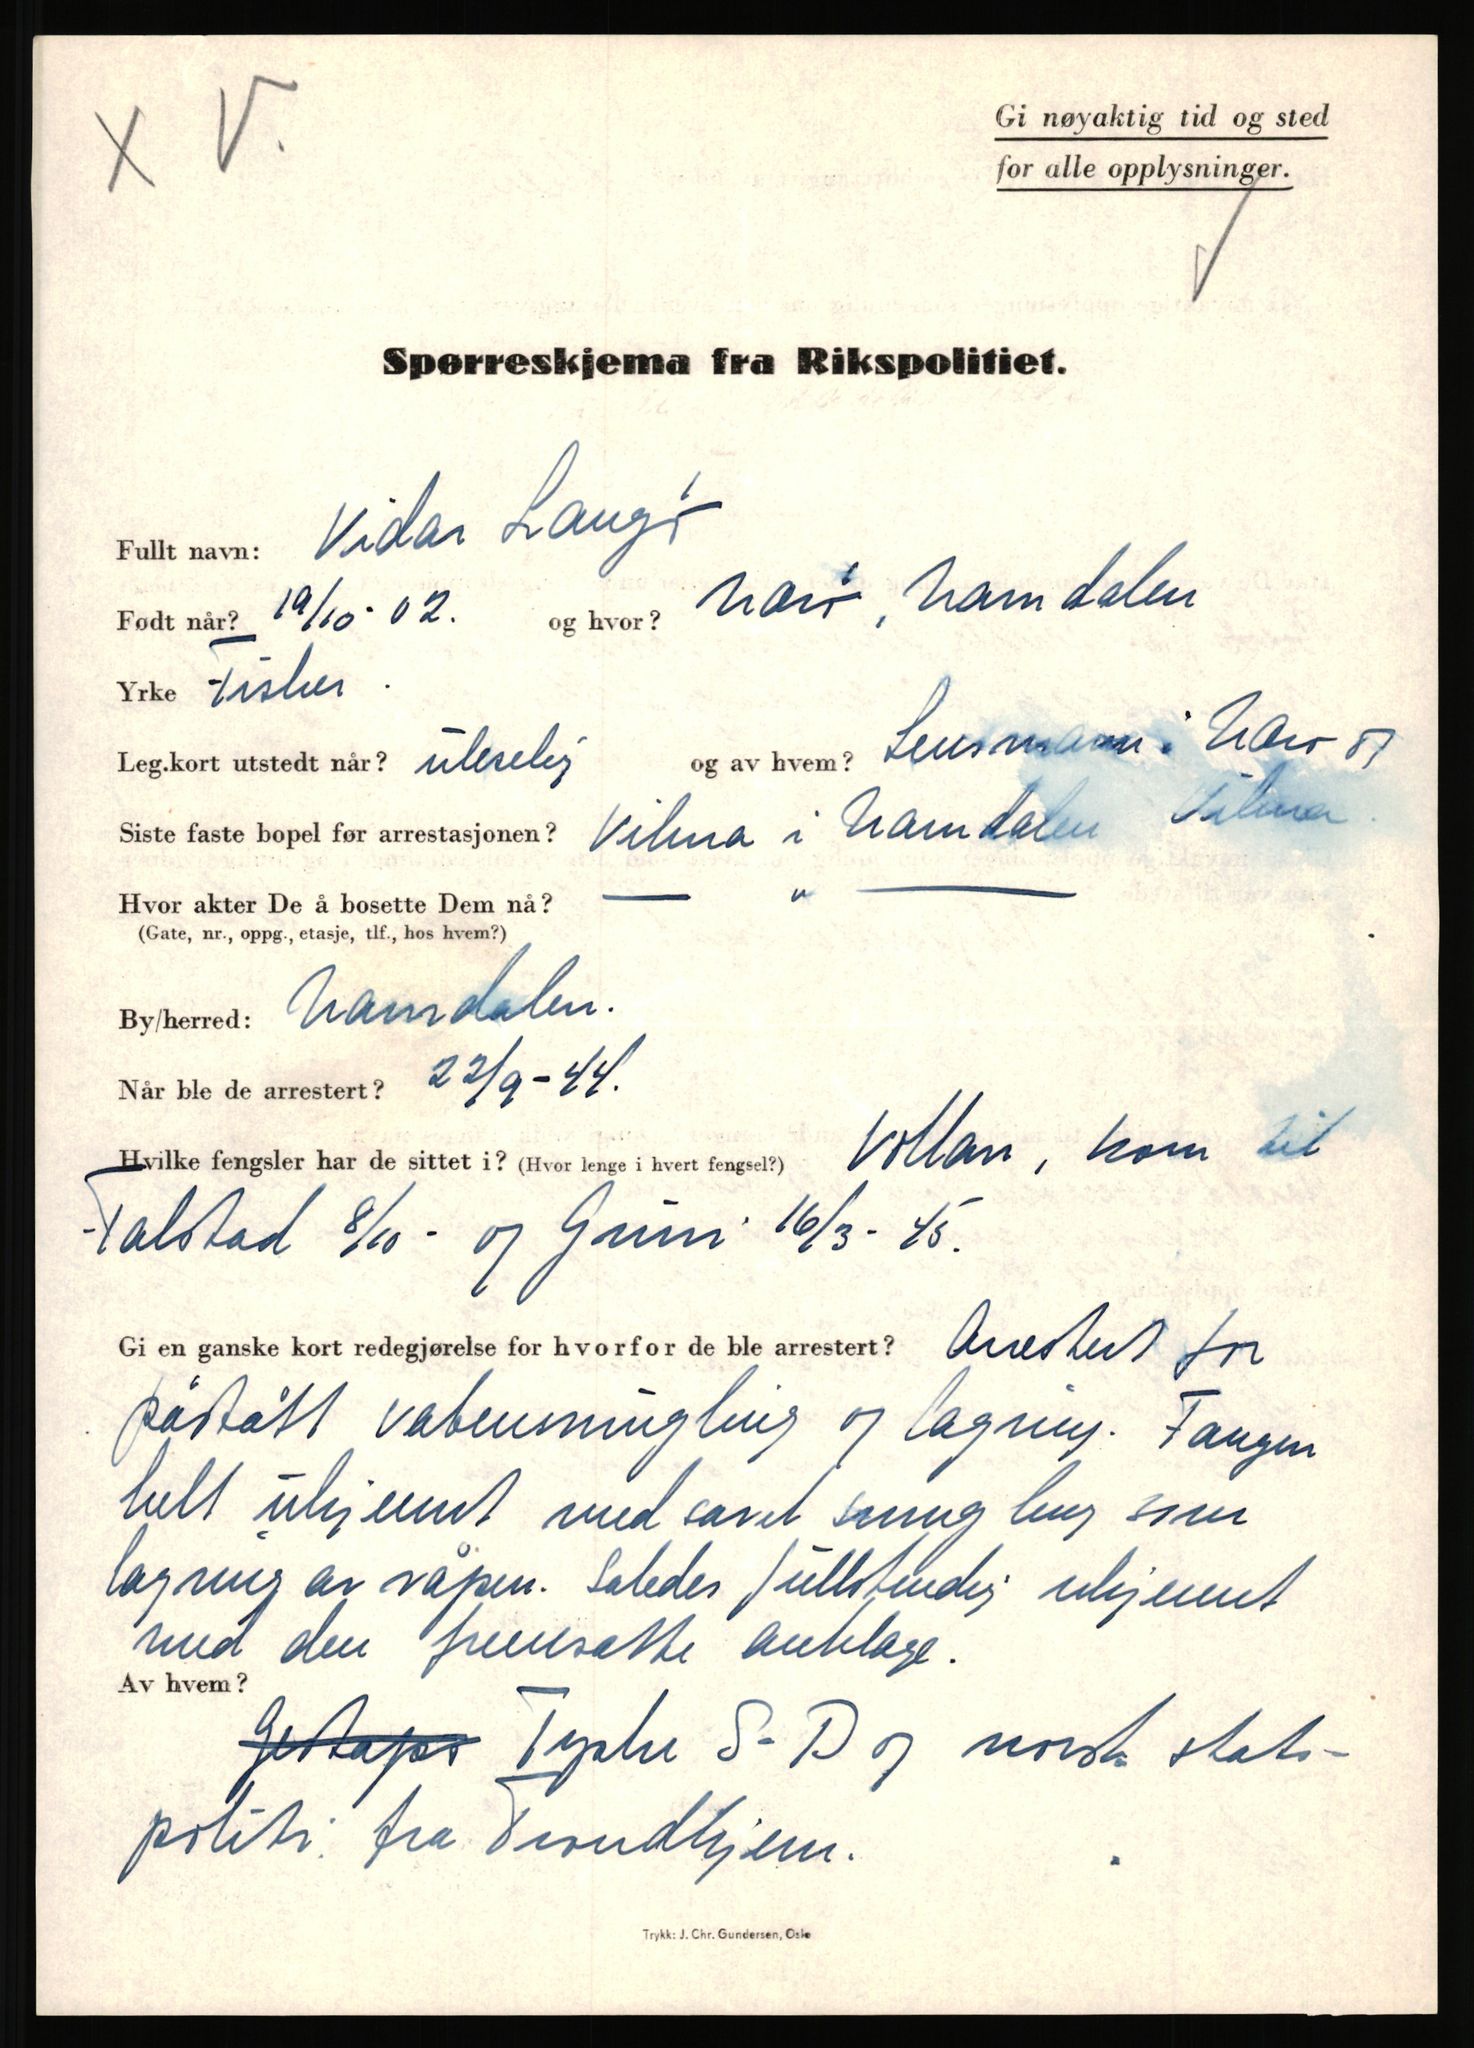 X V.
Gi nøyaktig tid og sted
for alle opplysninger.
Spørreskjema fra Rikspolitiet.
Fullt navn: Vidar Langö
Født når? 19/10-02. og hvor? Narö, Namdalen
Yrke Fisker.
Leg.kort utstedt når? uleselig og av hvem? Lensmann i Narö og
Vikna.
Siste faste bopel før arrestasjonen? Vikna i Namdalen
Hvor akter De å bosette Dem nå? — " —
(Gate, nr., oppg., etasje, tlf., hos hvem?)
By/herred: Namdalen.
Når ble de arrestert? 22/9-44.
Hvilke fengsler har de sittet i? (Hvor lenge i hvert fengsel?) Vollan, kom til
Falstad 8/10- og Grini 16/3-45.
Gi en ganske kort redegjørelse for hvorfor de ble arrestert? Arrestert for
påstått vabensmugling og lagring. Fangen
helt ukjennt med såvel smugling som
lagring av våpen. Således fullstendig ukjennt
med den fremsatte anklage.
Av hvem?
Gestapo Tyske S-D og norsk stats-
politi fra Trondhjem.
Trykk: J. Chr. Gundersen, Oslo